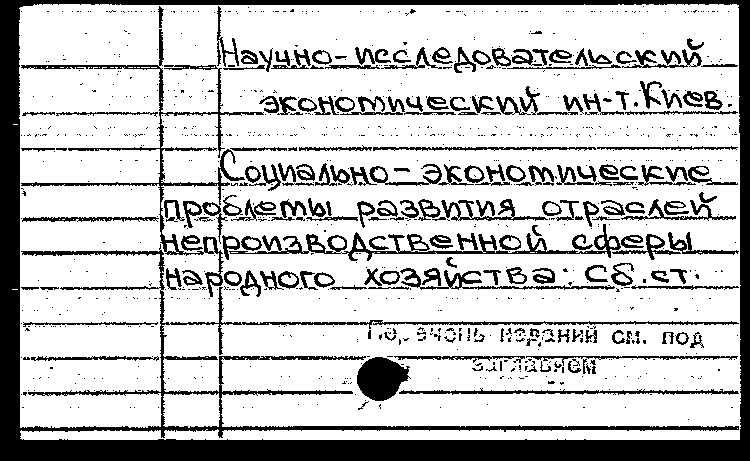 Научно-исследовательский
экономический ин-т. Киев.
Социально-экономические
проблемы развития отраслей
непроизводственной сферы
народного хозяйства: Сб.ст.
Перечень изданий см. под
заглавием